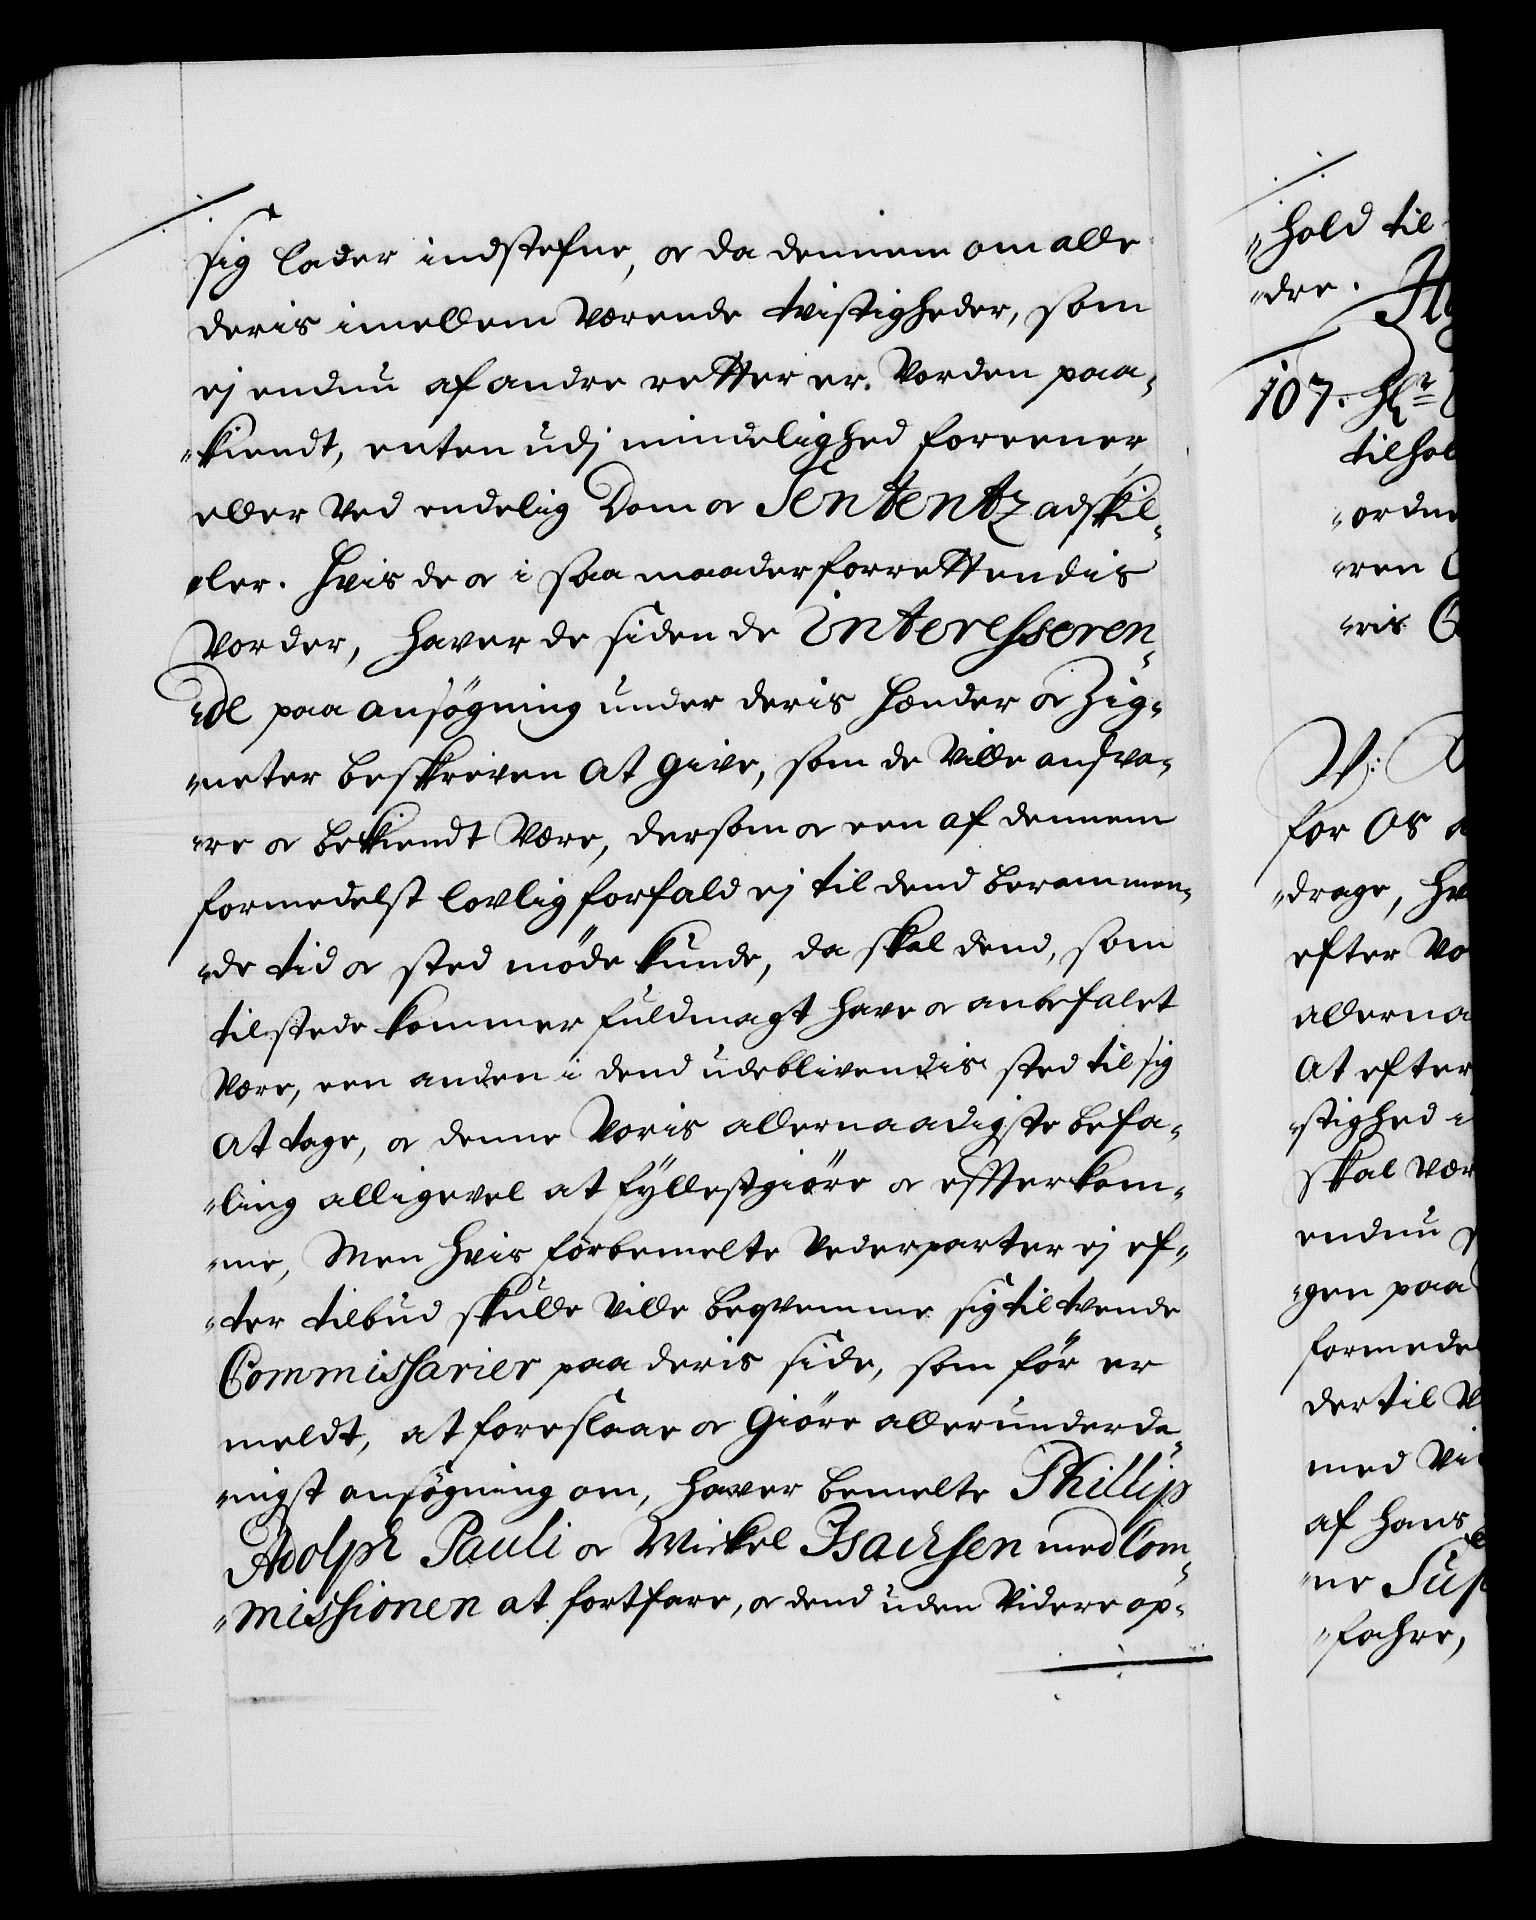 sig lader indstefne, oc da dennem om alle
deris imellem værende tvistigheder, som
ej endnu af andre retter er vorden paa-
kiendt, enten udj mindelighed foreener,
eller ved endelig Dom oc Sententz adskil-
ler. Hvis de oc i saa maader forrettendis
vorder, haver de siden de interesseren-
de paa ansøgning under deris hænder oc Zig-
neter beskreven at give, som de ville andsva-
re oc bekiendt være, dersom oc een af dennem
formedelst lovlig forfald ej til dend berammen-
de tid oc sted møde kunde, da skal dend, som
tilstede kommer fuldmagt have oc anbefalet
være, een anden i dend udeblivendis sted til sig
at tage, oc denne Voris allernaadigste befa-
ling alligevel at fyllestgiøre oc effterkom-
me, Men hvis forbemelte vederparter ej ef-
ter tilbud skulle ville beqvemme sig til tvende
Commissarier paa deris side, som før er
meldt, at foreslaae oc giøre allerunderda-
nigst ansøgning om, haver bemelte Phillip
Adolph Pauli oc Mickel Isachsen med Com-
missionen at fortfare, oc dend uden videre op-
hold til
dre.
107. Hr
tilhol
ordne
ren
ris
for os
drage, hv
efter Vo
allerna
at efter
stighed i
skal vær
endnu
gen paa
formedel
der til
med Vi
af hans
ne Sup
fahre,